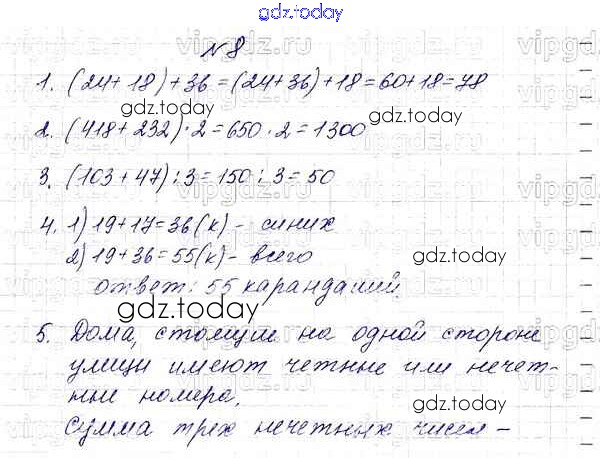 gdz.today
№8
1. (24+18)+36=(24+36)+18=60+18=78
gdz.today
2. (418+232)·2=650·2=1300
3. (103+47):3=150:3=50
4. 1) 19+17=36(к) - синих
2) 19+36=55(к) - всего
gdz.today
ответ: 55 карандашей.
gdz.today
5. Дома, стоящие на одной стороне
улицы имеют четные или нечет-
ные номера.
gdz.today
Сумма трех нечетных чисел -